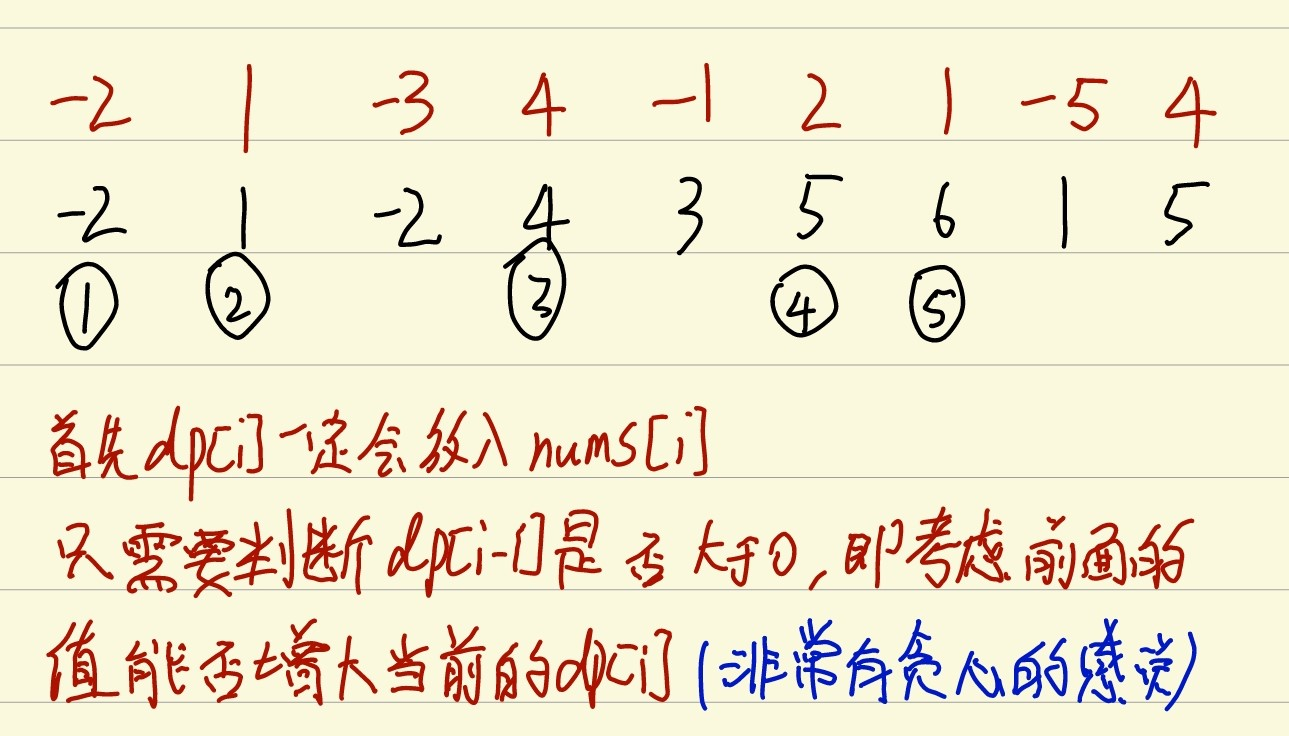 -2 1 -3 4 -1 2 1 -5 4
-2 1 -2 4 3 5 6 1 5
① ② ③ ④ ⑤
首先dp[i]一定会放入nums[i]
只需要判断dp[i-1]是否大于0,即考虑前面的
值能否增大当前的dp[i](非常有贪心的感觉)